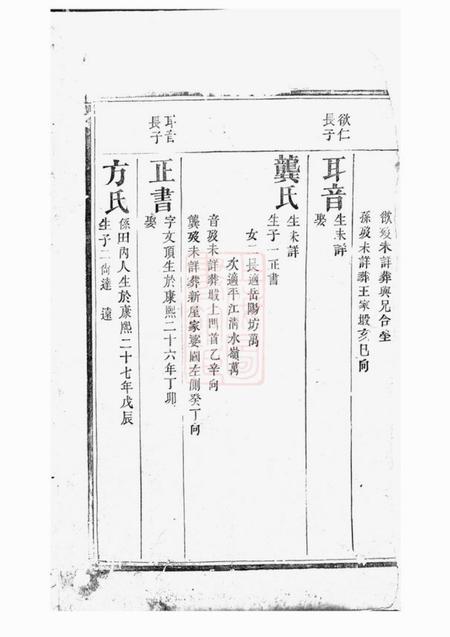 欲歿未詳葬與兄合塋
孫歿未詳葬王家塅亥巳向
欲仁
長子
耳音
生未詳
娶
龔氏
生未詳
生子一正書
女二長適岳陽坊萬
次適平江清水嶺萬
音歿未詳葬塅上門首乙辛向
龔歿未詳葬新屋家婆園左側癸丁向
耳音
長子
正書
字文頂生於康熙二十六年丁卯
娶
方氏
係田內人生於康熙二十七年戊辰
生子二尚達 遠